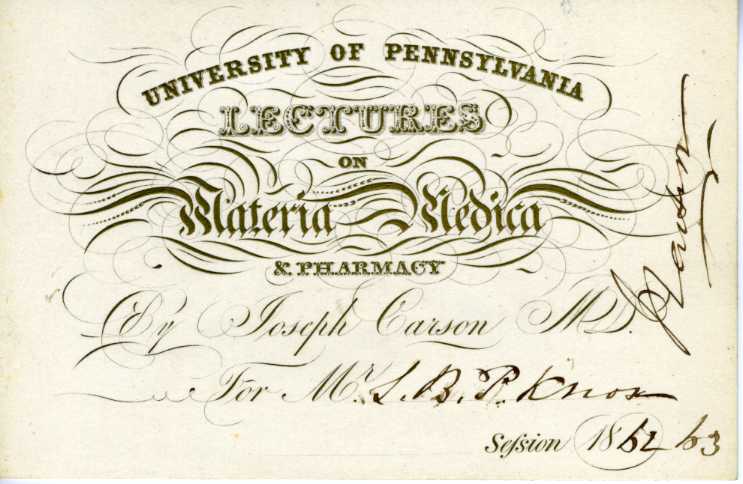 UNIVERSITY OF PENNSYLVANIA
LECTURES
ON
Materia Medica
& PHARMACY
By Joseph Carson M.D.
For Mr. L. B. P. Knox
Seſsion 1862 63